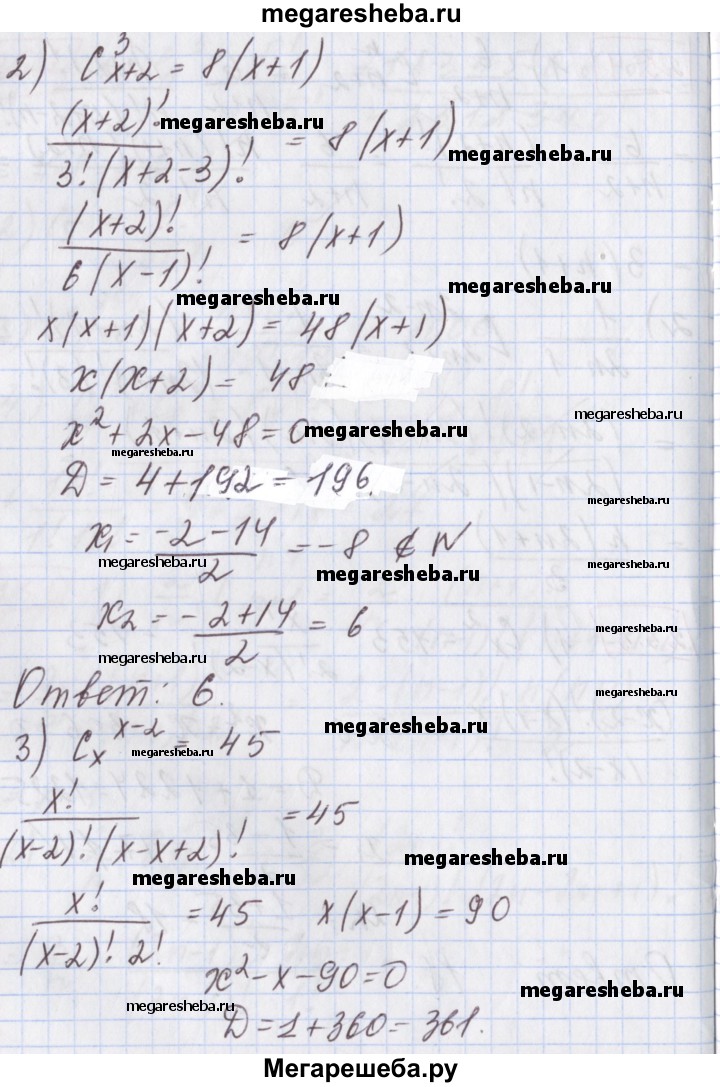 megaresheba.ru
2) C³ₓ₊₂ = 8(x+1)
(x+2)! / 3!(x+2-3)! = 8(x+1)
megaresheba.ru megaresheba.ru
(x+2)! / 6(x-1)! = 8(x+1)
megaresheba.ru megaresheba.ru
x(x+1)(x+2) = 48(x+1)
x(x+2) = 48
megaresheba.ru
x² + 2x - 48 = 0
megaresheba.ru
megaresheba.ru
Д = 4+192 = 196.
megaresheba.ru
x₁ = (-2-14)/2 = -8 ∉ N
megaresheba.ru megaresheba.ru megaresheba.ru
x₂ = -2+14/2 = 6
megaresheba.ru
megaresheba.ru
Ответ: 6.
megaresheba.ru
3) Cₓˣ⁻² = 45
megaresheba.ru megaresheba.ru
x! / (x-2)!(x-x+2)! = 45
megaresheba.ru
megaresheba.ru
x! / (x-2)! 2! = 45 x(x-1) = 90
x² - x - 90 = 0
megaresheba.ru
megaresheba.ru
Д = 1+360 = 361.
Мегарешеба.ру